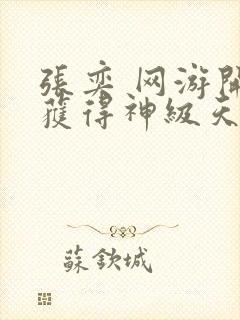 張奕 网游開
獲得神級天
蘇欽城